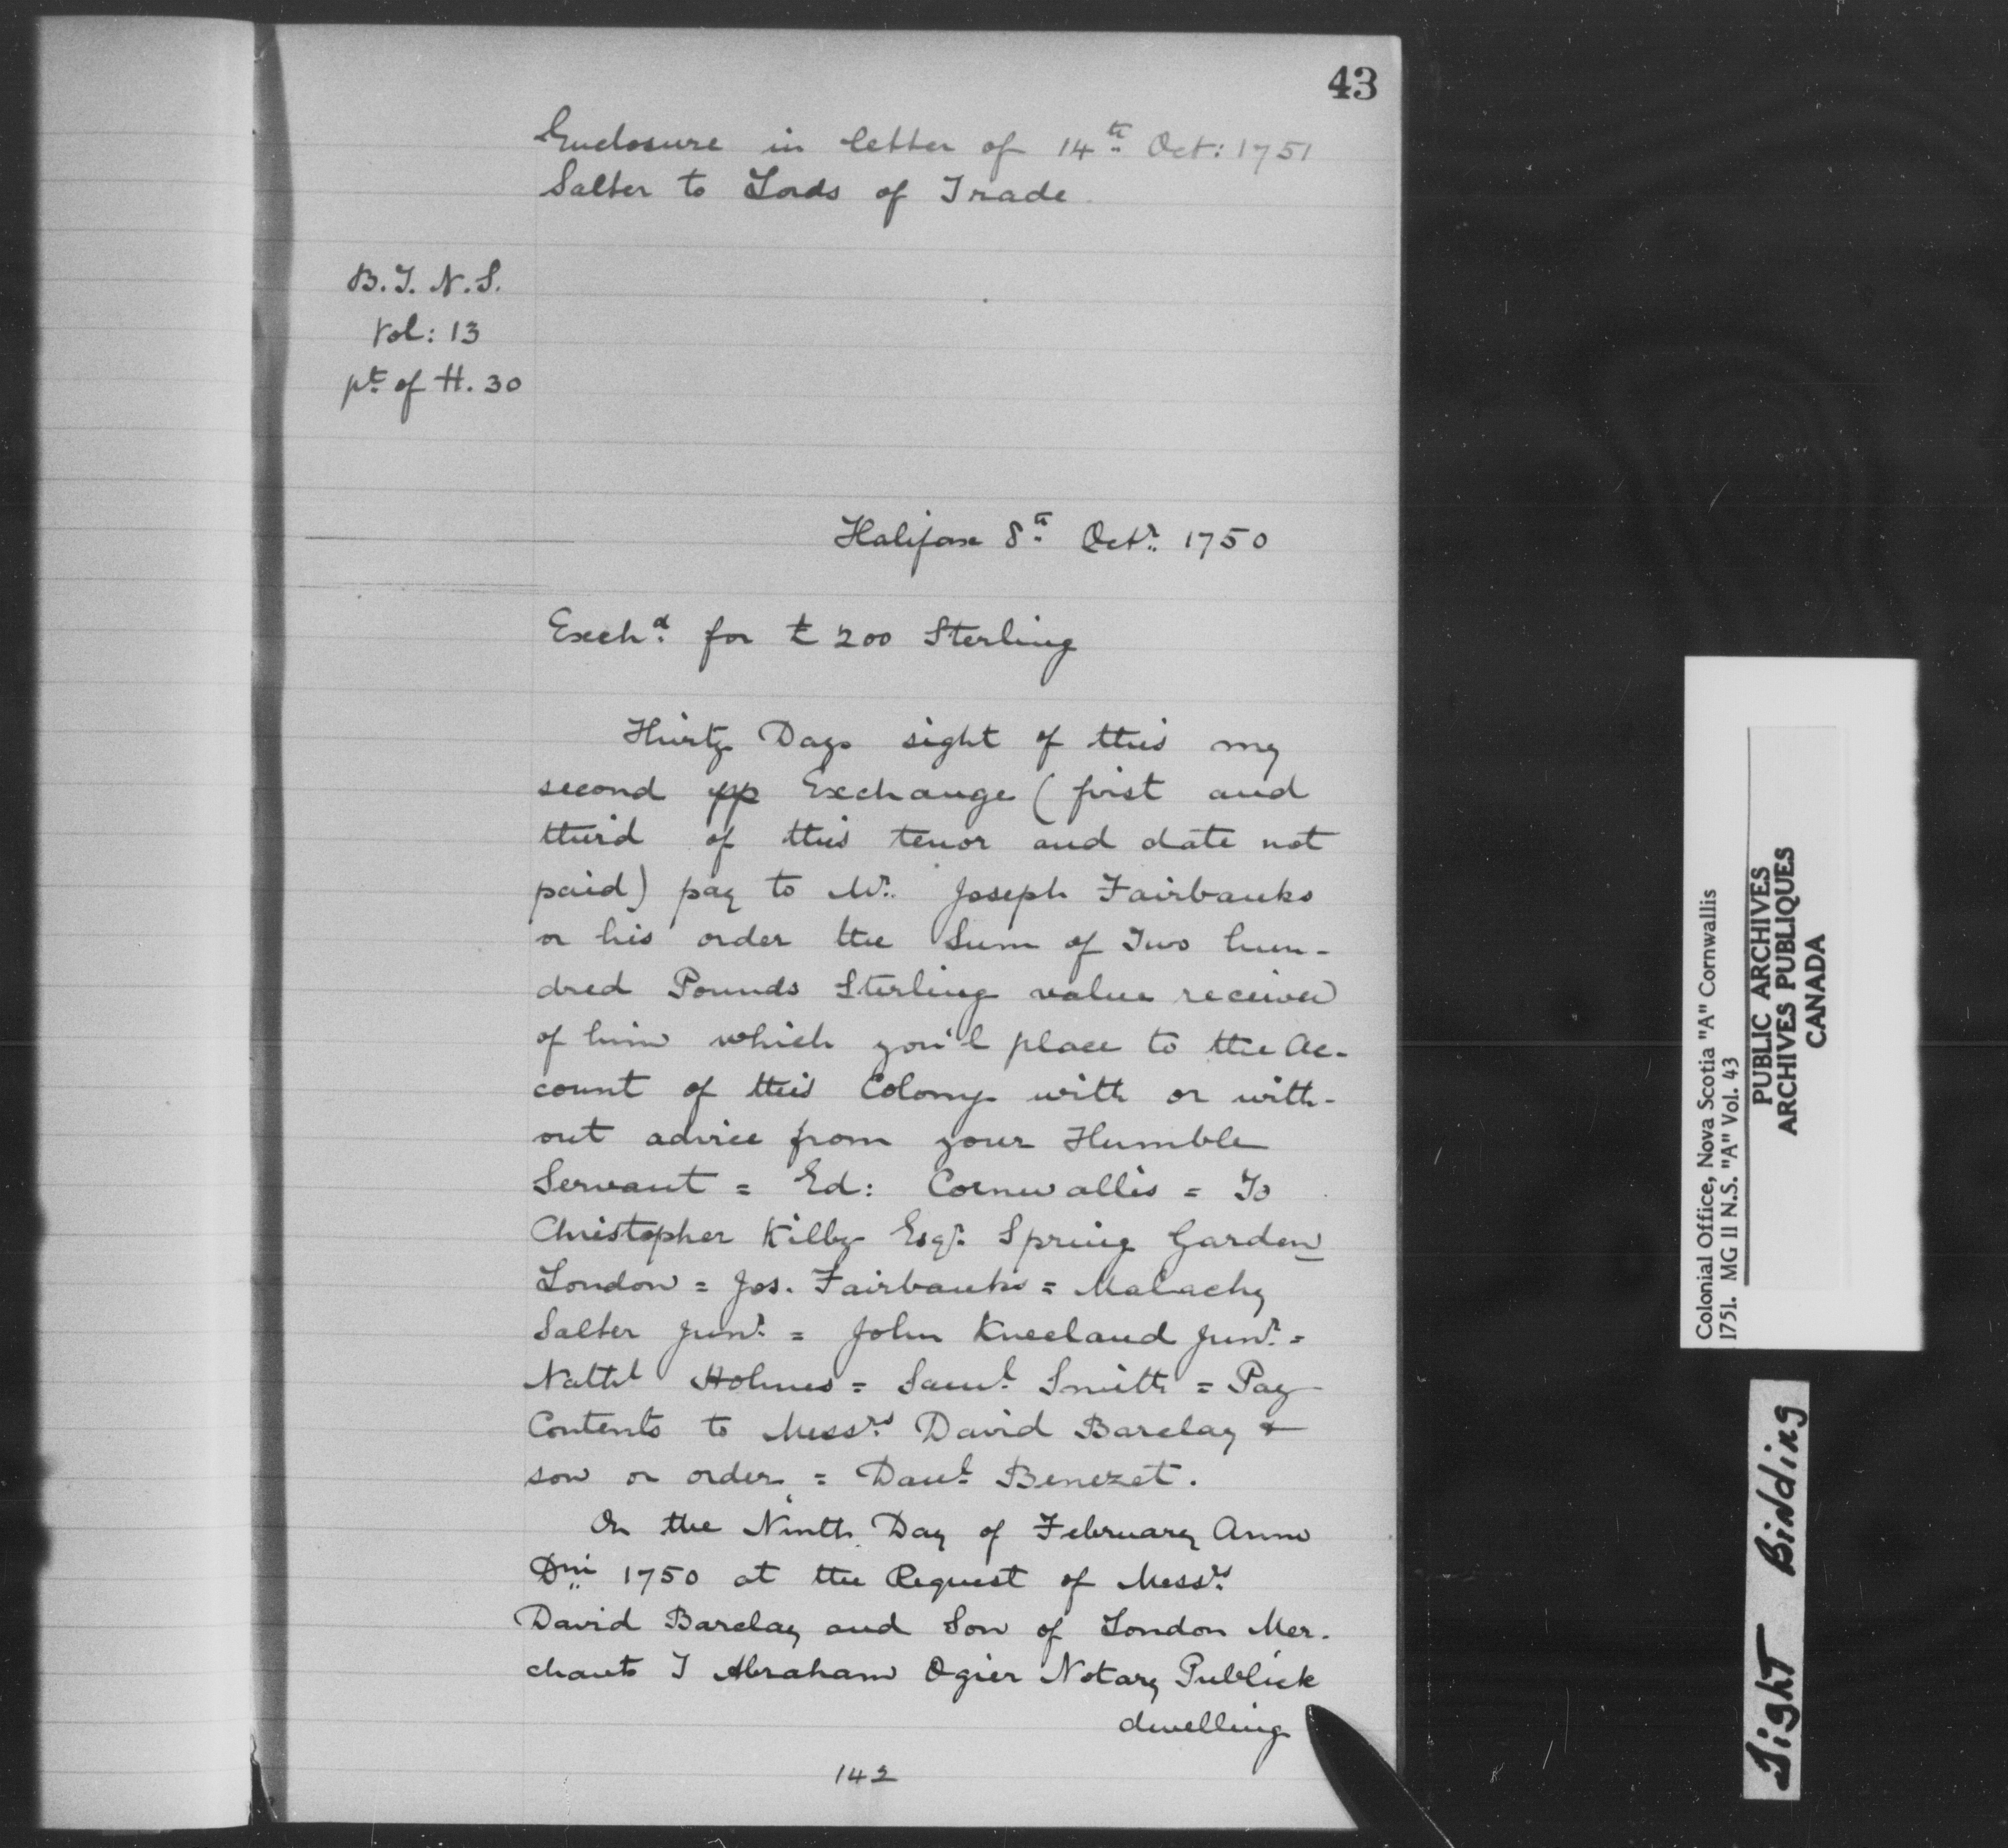 43
Enclosure in letter of 14th Oct: 1751
Salter to Lords of Trade.
B.T. N.S.
Vol: 13
pt of H. 30
Halifax 8th Octr. 1750
Exchd. for £200 Sterling
Thirty Days sight of this my
second pp Exchange (first and
third of this tenor and date not
paid) pay to Mr. Joseph Fairbanks
or his order the Sum of Two hun-
dred Pounds Sterling value received
of him which you'l place to the Ac-
count of this Colony with or with-
out advice from your Humble
Servant = Ed: Cornwallis = To
Christopher Kilby Esqr. Spring Garden
London = Jos. Fairbanks = Malachy
Salter Junr. = John Kneeland Junr. =
Nathl Holmes = Saml. Smith = Pay
Contents to Messrs. David Barclay &
son or order = Danl. Benezet.
On the Ninth Day of February Anno
Dni 1750 at the Request of Messrs.
David Barclay and Son of London Mer-
chants I Abraham Ogier Notary Publick
dwelling
142
Colonial Office, Nova Scotia "A" Cornwallis
1751. MG II N.S. "A" Vol. 43
PUBLIC ARCHIVES
ARCHIVES PUBLIQUES
CANADA
Tight Binding